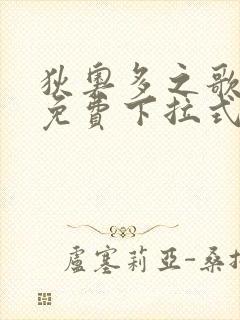 狄奧多之歌
免費下拉式
盧塞莉亞-桑托